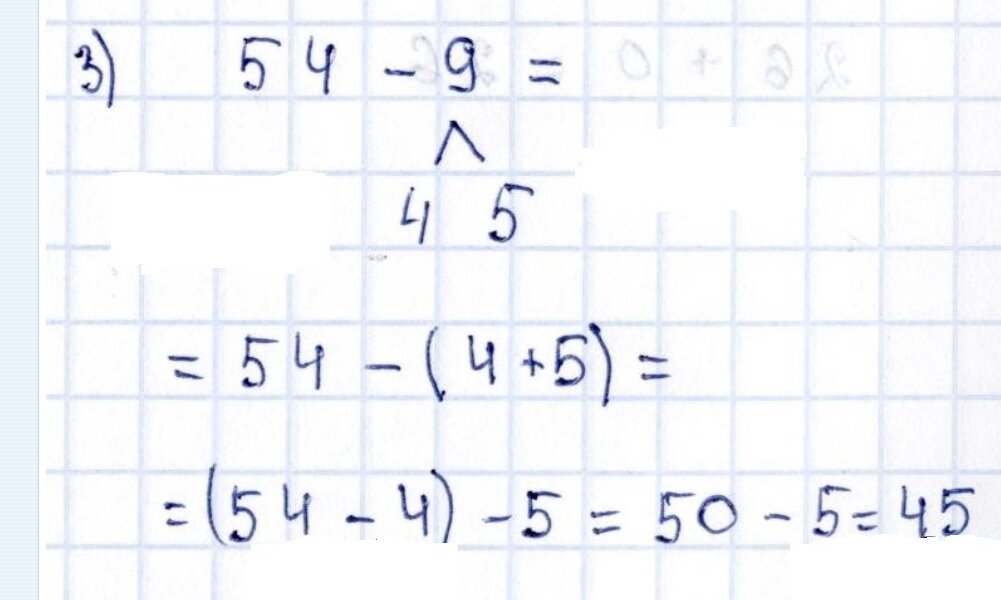 3) 54 - 9 =
∧
4 5
= 54 - (4+5) =
= (54 - 4) - 5 = 50 - 5 = 45